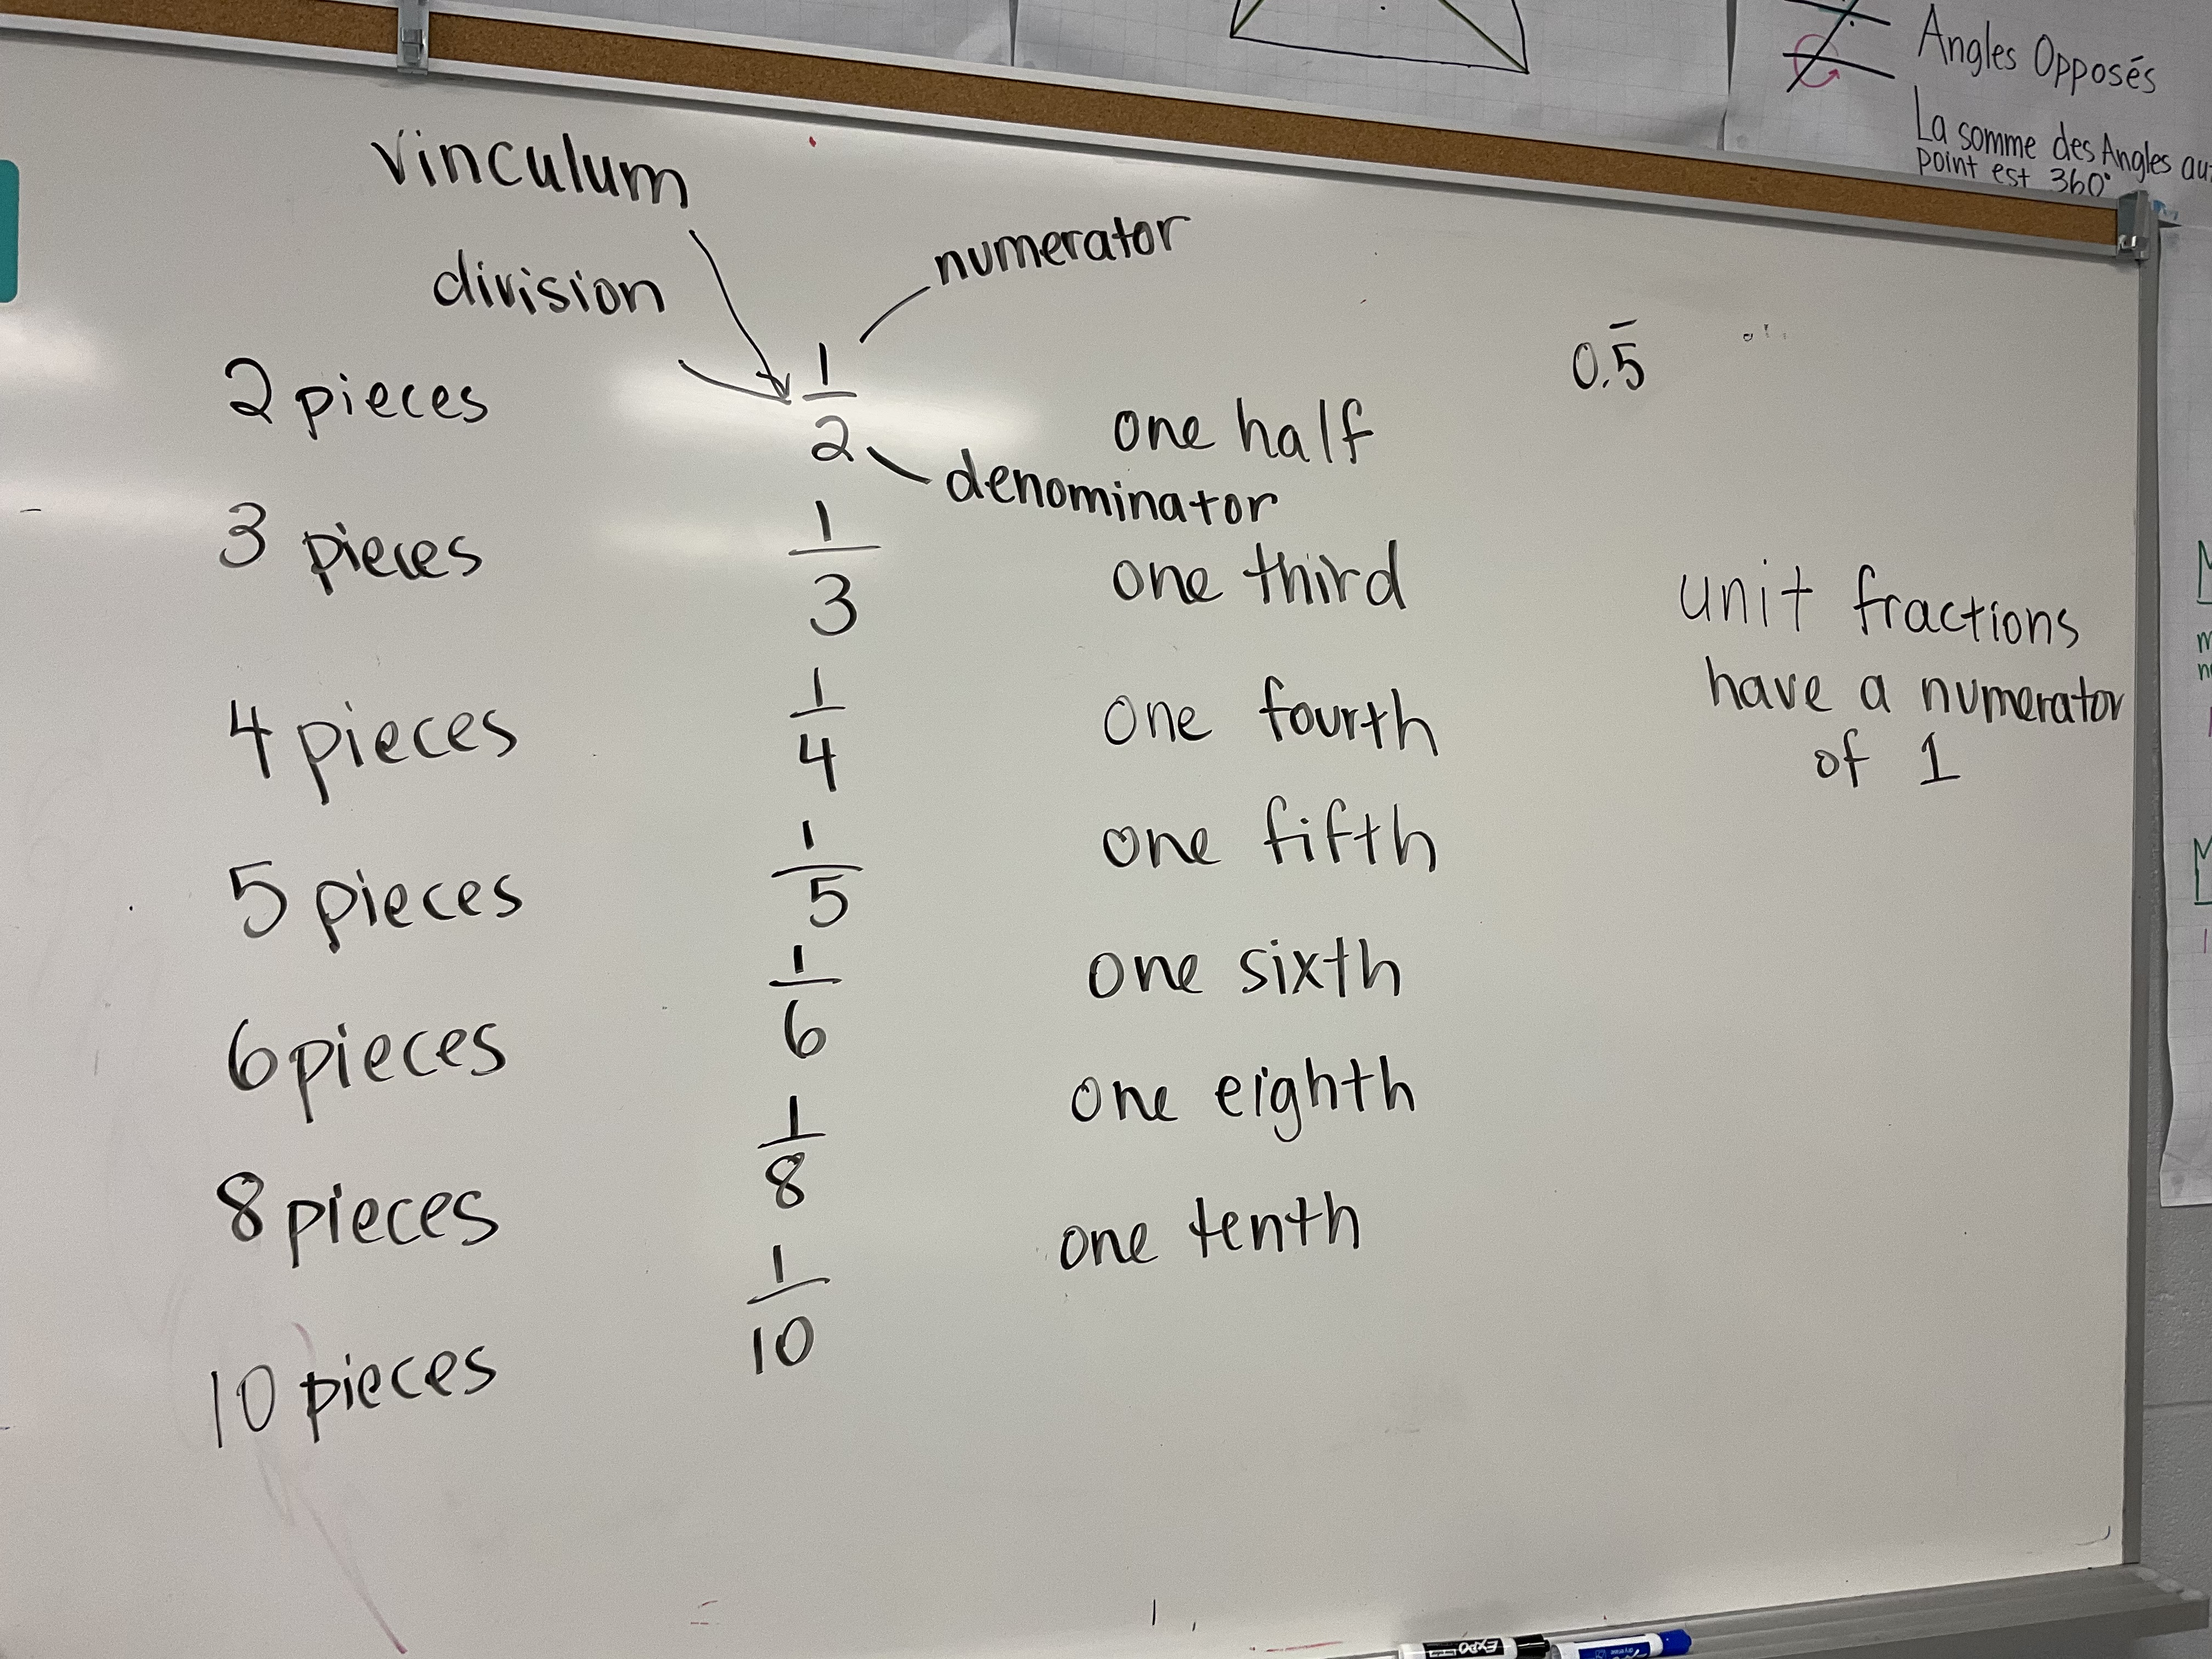 Angles Opposés
La somme des Angles
point est 360°
vinculum
numerator
division
0.5̅
2 pieces
1
2
one half
denominator
3 pieces
1
3
one third
unit fractions
have a numerator
of 1
4 pieces
1
4
one fourth
5 pieces
1
5
one fifth
6 pieces
1
6
one sixth
8 pieces
1
8
one eighth
10 pieces
1
10
one tenth
EXPO